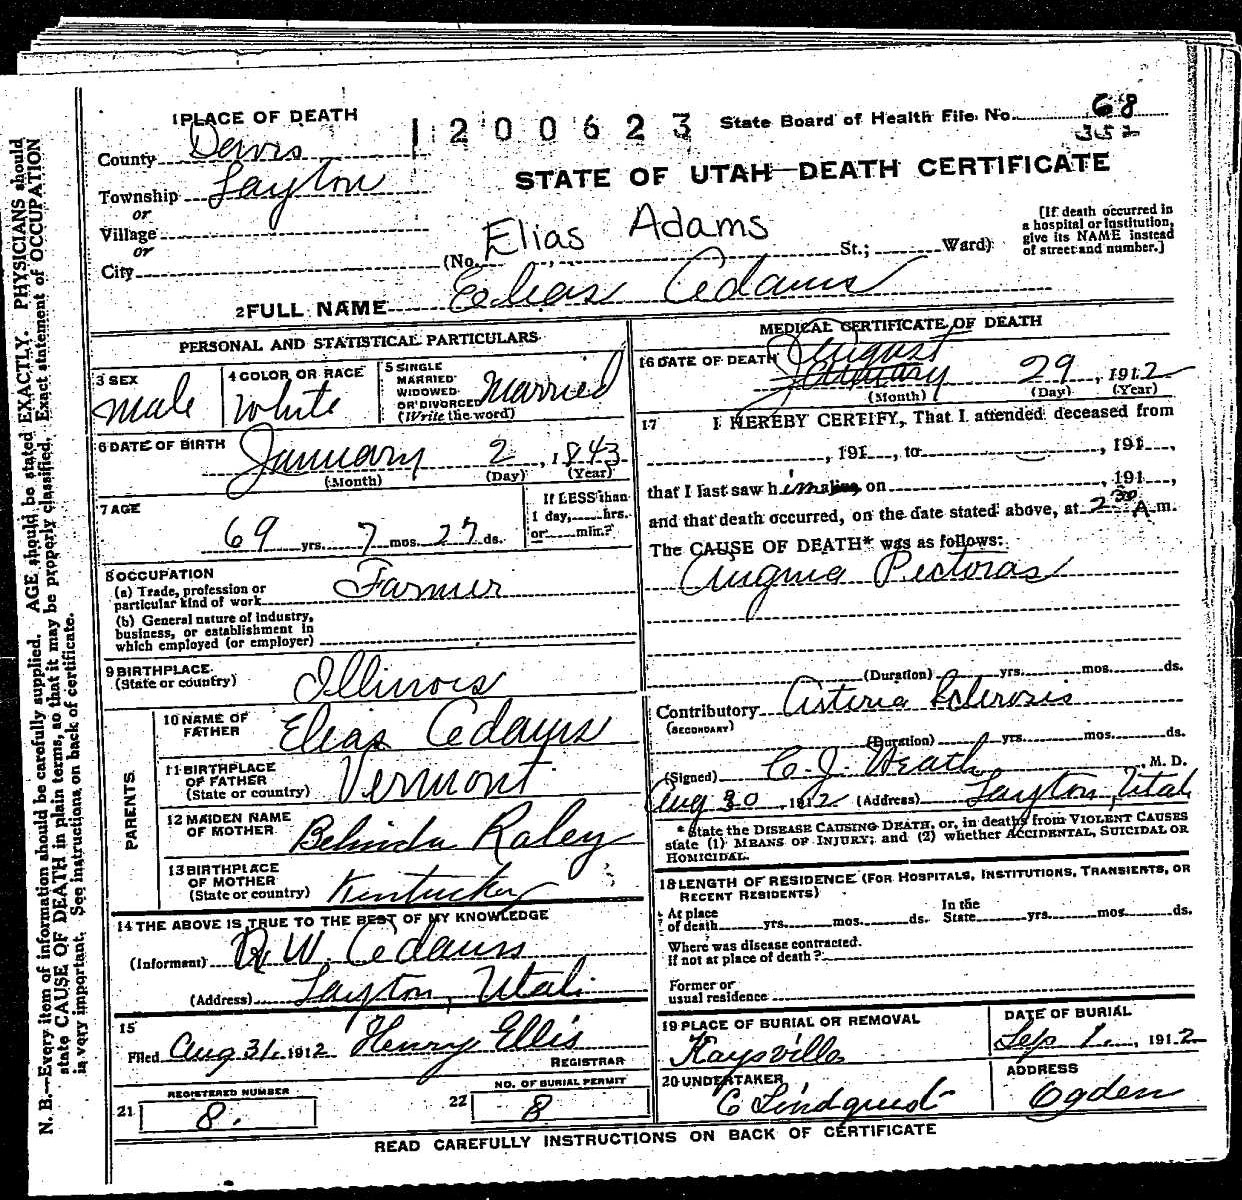 1 PLACE OF DEATH
1200623
State Board of Health File No. 68
352
County Davis
STATE OF UTAH—DEATH CERTIFICATE
Township Layton
or
Village
or
City
(No. Elias Adams St.; Ward)
[If death occurred in a hospital or institution, give its NAME instead of street and number.]
2 FULL NAME Elias Adams
PERSONAL AND STATISTICAL PARTICULARS
3 SEX
Male
4 COLOR OR RACE
White
5 SINGLE MARRIED WIDOWED OR DIVORCED (Write the word)
Married
6 DATE OF BIRTH
January 2, 1843
(Month) (Day) (Year)
7 AGE
69 yrs. 7 mos. 27 ds.
If LESS than 1 day, hrs. or min.?
8 OCCUPATION
(a) Trade, profession or particular kind of work Farmer
(b) General nature of industry, business, or establishment in which employed (or employer)
9 BIRTHPLACE
(State or country) Illinois
PARENTS
10 NAME OF FATHER Elias Adams
11 BIRTHPLACE OF FATHER (State or country) Vermont
12 MAIDEN NAME OF MOTHER Belinda Raley
13 BIRTHPLACE OF MOTHER (State or country) Kentucky
14 THE ABOVE IS TRUE TO THE BEST OF MY KNOWLEDGE
(Informant) R W. Adams
(Address) Layton, Utah
15
Filed Aug 31, 1912 Henry Ellis
REGISTRAR
REGISTERED NUMBER
21 8.
NO. OF BURIAL PERMIT
22 8
MEDICAL CERTIFICATE OF DEATH
16 DATE OF DEATH August
January 29, 1912
(Month) (Day) (Year)
17 I HEREBY CERTIFY, That I attended deceased from
, 191 , to , 191 ,
that I last saw him alive on , 191 ,
and that death occurred, on the date stated above, at 2 30 A m.
The CAUSE OF DEATH* was as follows:
Angina Pectoras
(Duration) yrs. mos. ds.
Contributory Arteria Sclerosis
(SECONDARY)
(Duration) yrs. mos. ds.
(Signed) C. J. Heath, M. D.
Aug 30 1912 (Address) Layton, Utah
* State the DISEASE CAUSING DEATH, or, in deaths from VIOLENT CAUSES
state (1) MEANS OF INJURY; and (2) whether ACCIDENTAL, SUICIDAL OR
HOMICIDAL.
18 LENGTH OF RESIDENCE (FOR HOSPITALS, INSTITUTIONS, TRANSIENTS, OR
RECENT RESIDENTS)
At place of death yrs. mos. ds. In the State yrs. mos. ds.
Where was disease contracted.
If not at place of death?
Former or
usual residence
19 PLACE OF BURIAL OR REMOVAL
Kaysville
DATE OF BURIAL
Sep 1., 1912
20 UNDERTAKER
C Lindquist
ADDRESS
Ogden
READ CAREFULLY INSTRUCTIONS ON BACK OF CERTIFICATE
N. B.—Every item of information should be carefully supplied. AGE should be stated EXACTLY. PHYSICIANS should
state CAUSE OF DEATH in plain terms, so that it may be properly classified. Exact statement of OCCUPATION
is very important. See instructions on back of certificate.